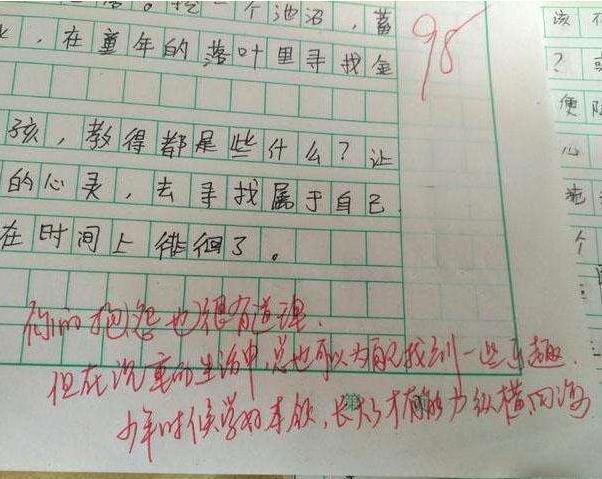 一个池沼，蓄
，在童年的落叶里寻找金
98
孩，教得都是些什么？让
的心灵，去寻找属于自己
在时间上徘徊了。
你的抱怨也很有道理．
但在沉重的生活中，总也可以为自己找到一些乐趣．
少年时候学好本领，长大了才有能力纵横四海
该
？
便
心
个